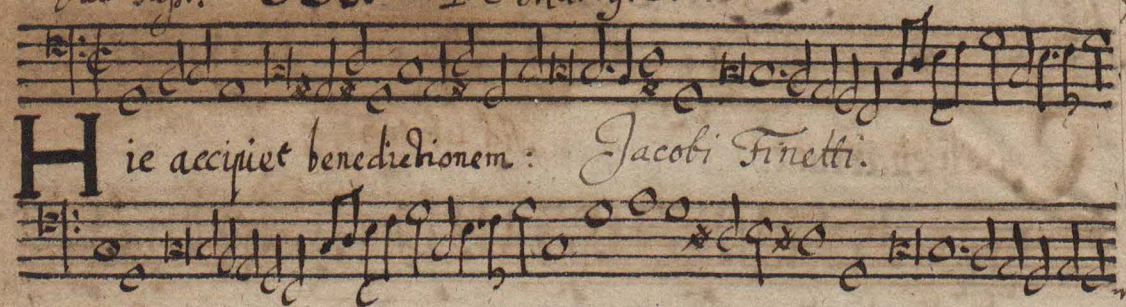 Hic accipiet benedictionem : Jacobi Finetti.